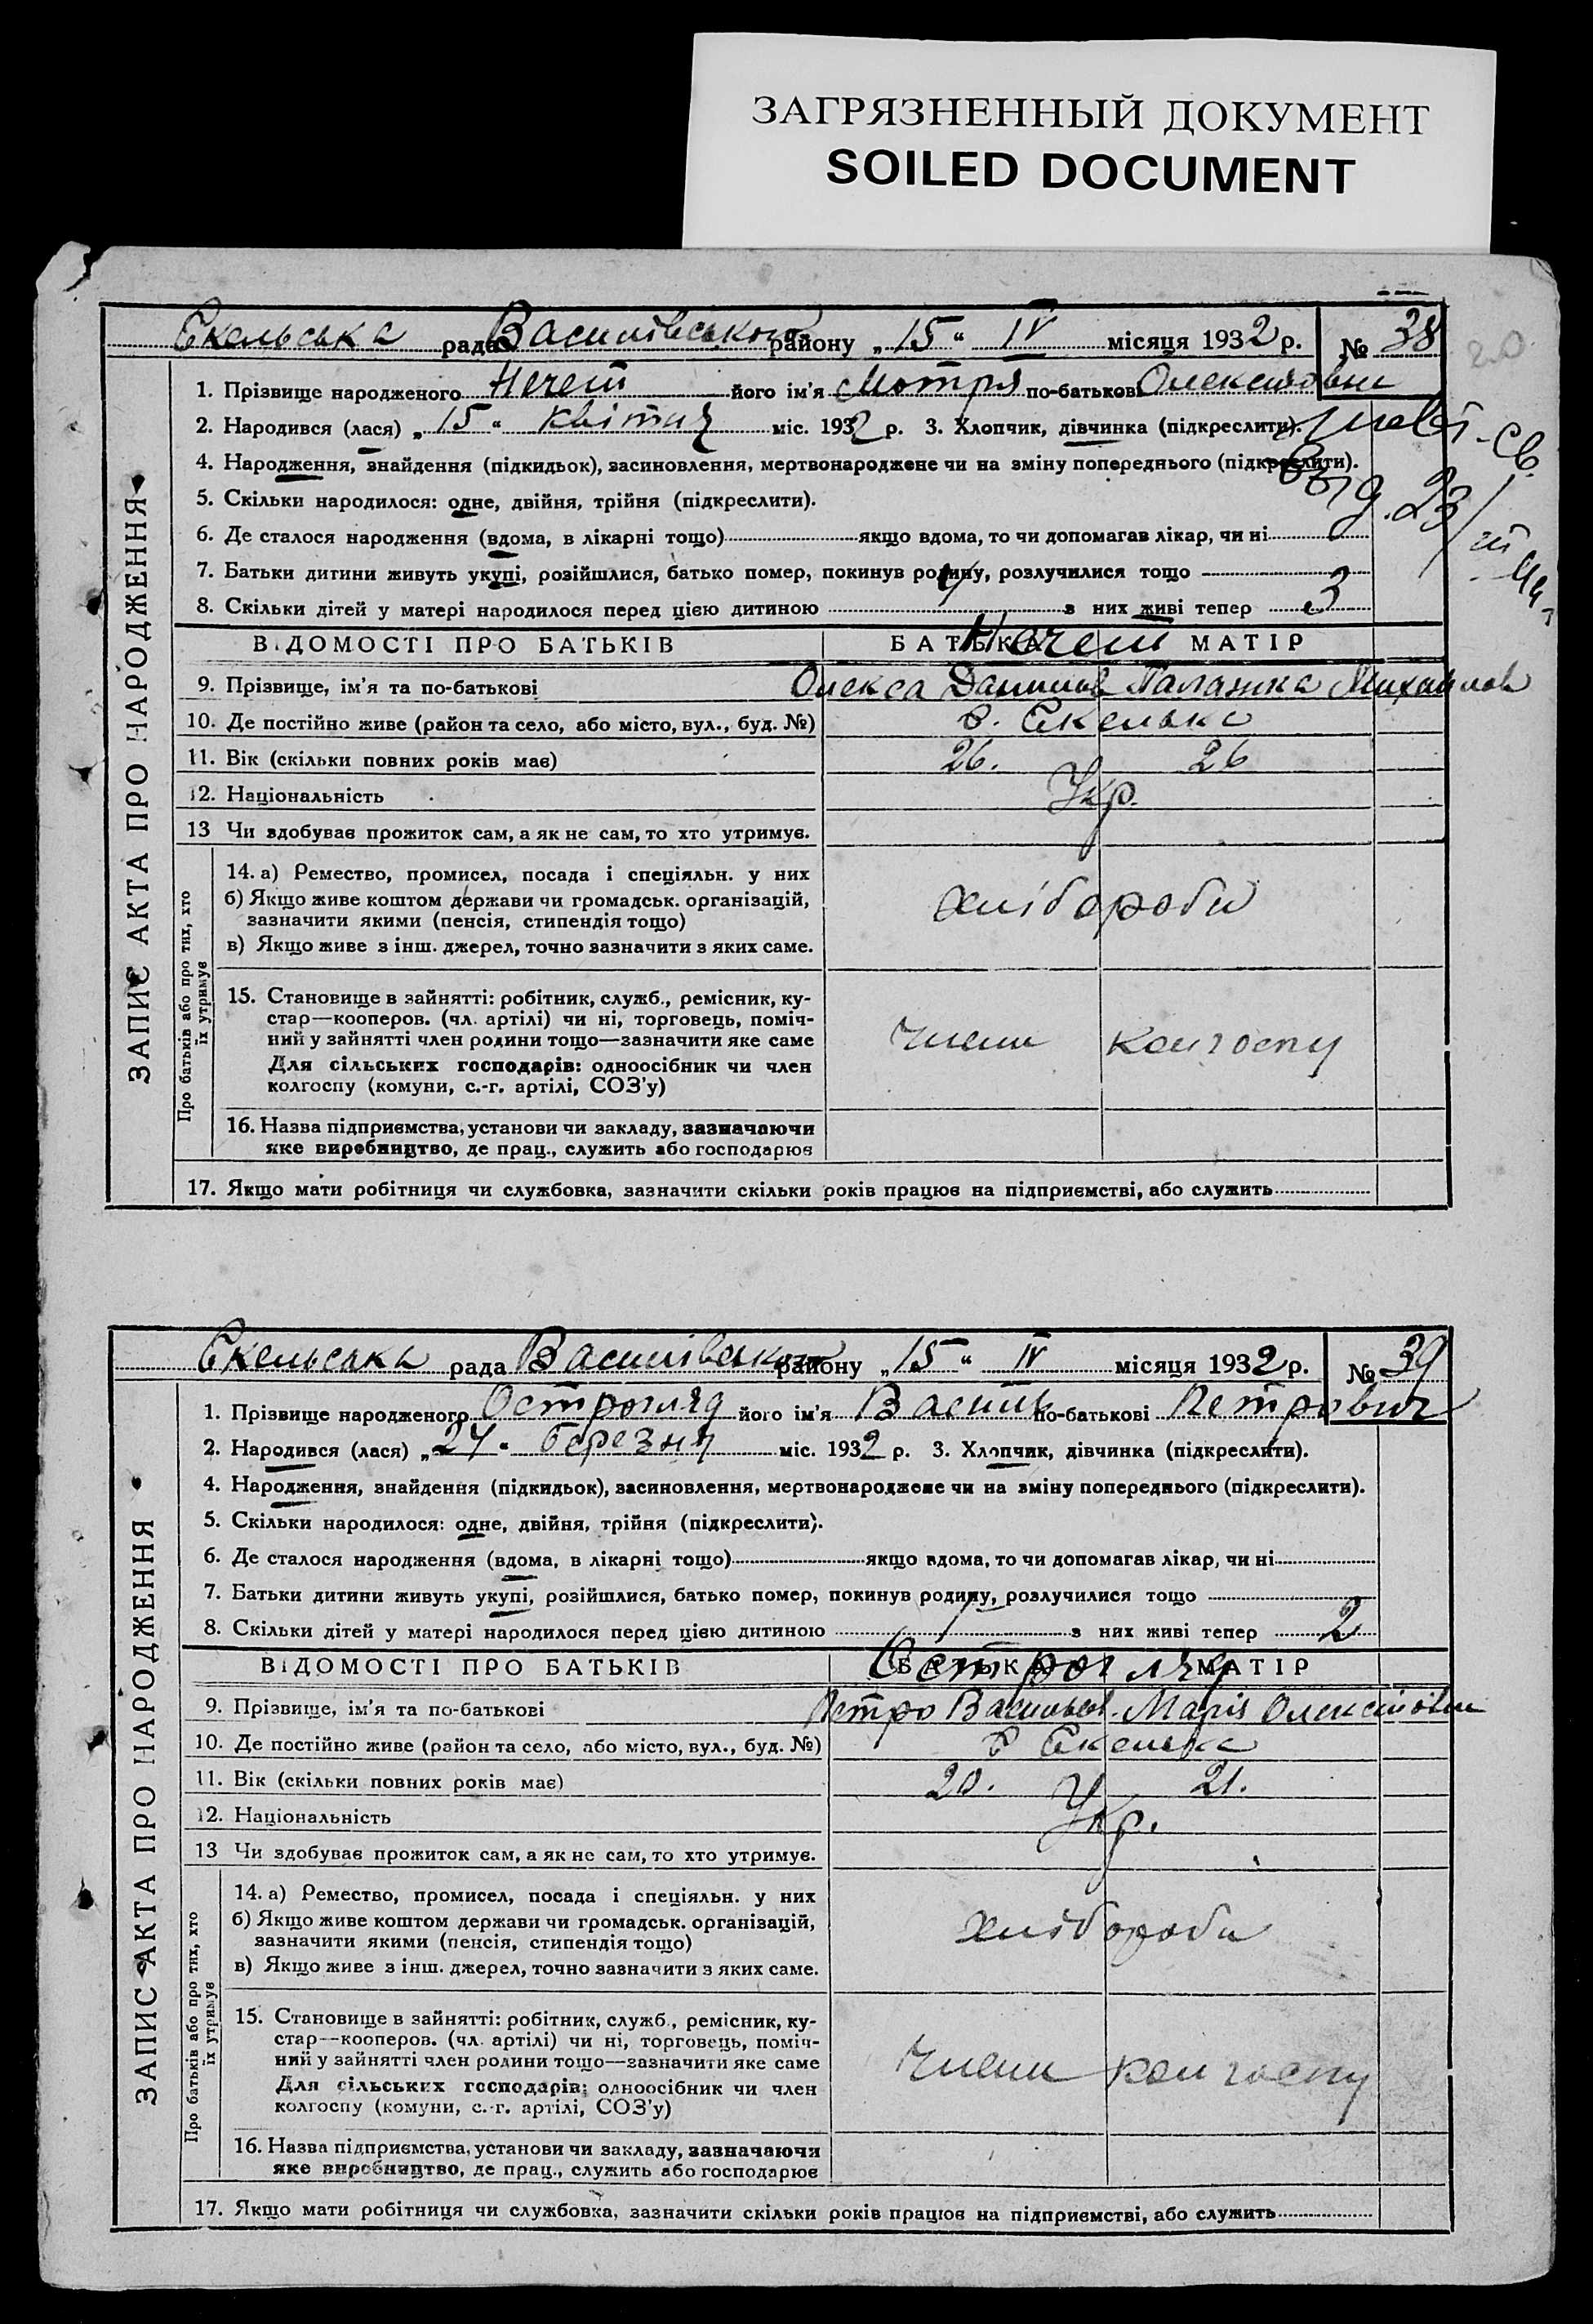 ЗАГРЯЗНЕННЫЙ ДОКУМЕНТ
SOILED DOCUMENT
ЗАПИС АКТА ПРО НАРОДЖЕННЯ
Скельська рада Василівського району „15“ IV місяця 1932 р. № 38
1. Прізвище народженого Нечет його ім'я Мотря по-батькові Олексіовна
2. Народився (лася) „15“ квітня міс. 1932 р. 3. Хлопчик, дівчинка (підкреслити).
4. Народження, знайдення (підкидьок), засиновлення, мертвонароджене чи на зміну попереднього (підкреслити).
5. Скільки народилося: одне, двійня, трійня (підкреслити).
6. Де сталося народження (вдома, в лікарні тощо) якщо вдома, то чи допомагав лікар, чи ні
7. Батьки дитини живуть укупі, розійшлися, батько помер, покинув родину, розлучилися тощо
8. Скільки дітей у матері народилося перед цією дитиною 4 з них живі тепер 3
ВІДОМОСТІ ПРО БАТЬКІВ БАТЬКА МАТІР
Нечет
9. Прізвище, ім'я та по-батькові Олекса Данилов Палажка Михайлов
10. Де постійно живе (район та село, або місто, вул., буд. №) с. Скелька
11. Вік (скільки повних років має) 26. 26
12. Національність Укр.
13 Чи здобуває прожиток сам, а як не сам, то хто утримує.
Про батьків або про тих, хто їх утримує
14. а) Ремество, промисел, посада і спеціяльн. у них
б) Якщо живе коштом держави чи громадськ. організацій,
зазначити якими (пенсія, стипендія тощо)
в) Якщо живе з інш. джерел, точно зазначити з яких саме.
хлібороби
15. Становище в зайнятті: робітник, служб., ремісник, ку-
стар—кооперов. (чл. артілі) чи ні, торговець, поміч-
ний у зайнятті член родини тощо—зазначити яке саме
Для сільських господарів: одноосібник чи член
колгоспу (комуни, с.-г. артілі, СОЗ'у)
члени колгоспу
16. Назва підприємства, установи чи закладу, зазначаючи
яке виробництво, де прац., служить або господарює
17. Якщо мати робітниця чи службовка, зазначити скільки років працює на підприємстві, або служить
ЗАПИС АКТА ПРО НАРОДЖЕННЯ
Скельська рада Василівського району „15“ IV місяця 1932 р. № 39
1. Прізвище народженого Острогляд його ім'я Василь по-батькові Петрович
2. Народився (лася) „27“ березня міс. 1932 р. 3. Хлопчик, дівчинка (підкреслити).
4. Народження, знайдення (підкидьок), засиновлення, мертвонароджене чи на зміну попереднього (підкреслити).
5. Скільки народилося: одне, двійня, трійня (підкреслити).
6. Де сталося народження (вдома, в лікарні тощо) якщо вдома, то чи допомагав лікар, чи ні
7. Батьки дитини живуть укупі, розійшлися, батько помер, покинув родину, розлучилися тощо
8. Скільки дітей у матері народилося перед цією дитиною 1 з них живі тепер 2
ВІДОМОСТІ ПРО БАТЬКІВ БАТЬКА МАТІР
Острогляд
9. Прізвище, ім'я та по-батькові Петро Васильов. Марія Олексіовн
10. Де постійно живе (район та село, або місто, вул., буд. №) с Скелька
11. Вік (скільки повних років має) 20. 21.
12. Національність Укр.
13 Чи здобуває прожиток сам, а як не сам, то хто утримує.
Про батьків або про тих, хто їх утримує
14. а) Ремество, промисел, посада і спеціяльн. у них
б) Якщо живе коштом держави чи громадськ. організацій,
зазначити якими (пенсія, стипендія тощо)
в) Якщо живе з інш. джерел, точно зазначити з яких саме.
хлібороби
15. Становище в зайнятті: робітник, служб., ремісник, ку-
стар—кооперов. (чл. артілі) чи ні, торговець, поміч-
ний у зайнятті член родини тощо—зазначити яке саме
Для сільських господарів: одноосібник чи член
колгоспу (комуни, с.-г. артілі, СОЗ'у)
члени колгоспу
16. Назва підприємства, установи чи закладу, зазначаючи
яке виробництво, де прац., служить або господарює
17. Якщо мати робітниця чи службовка, зазначити скільки років працює на підприємстві, або служить